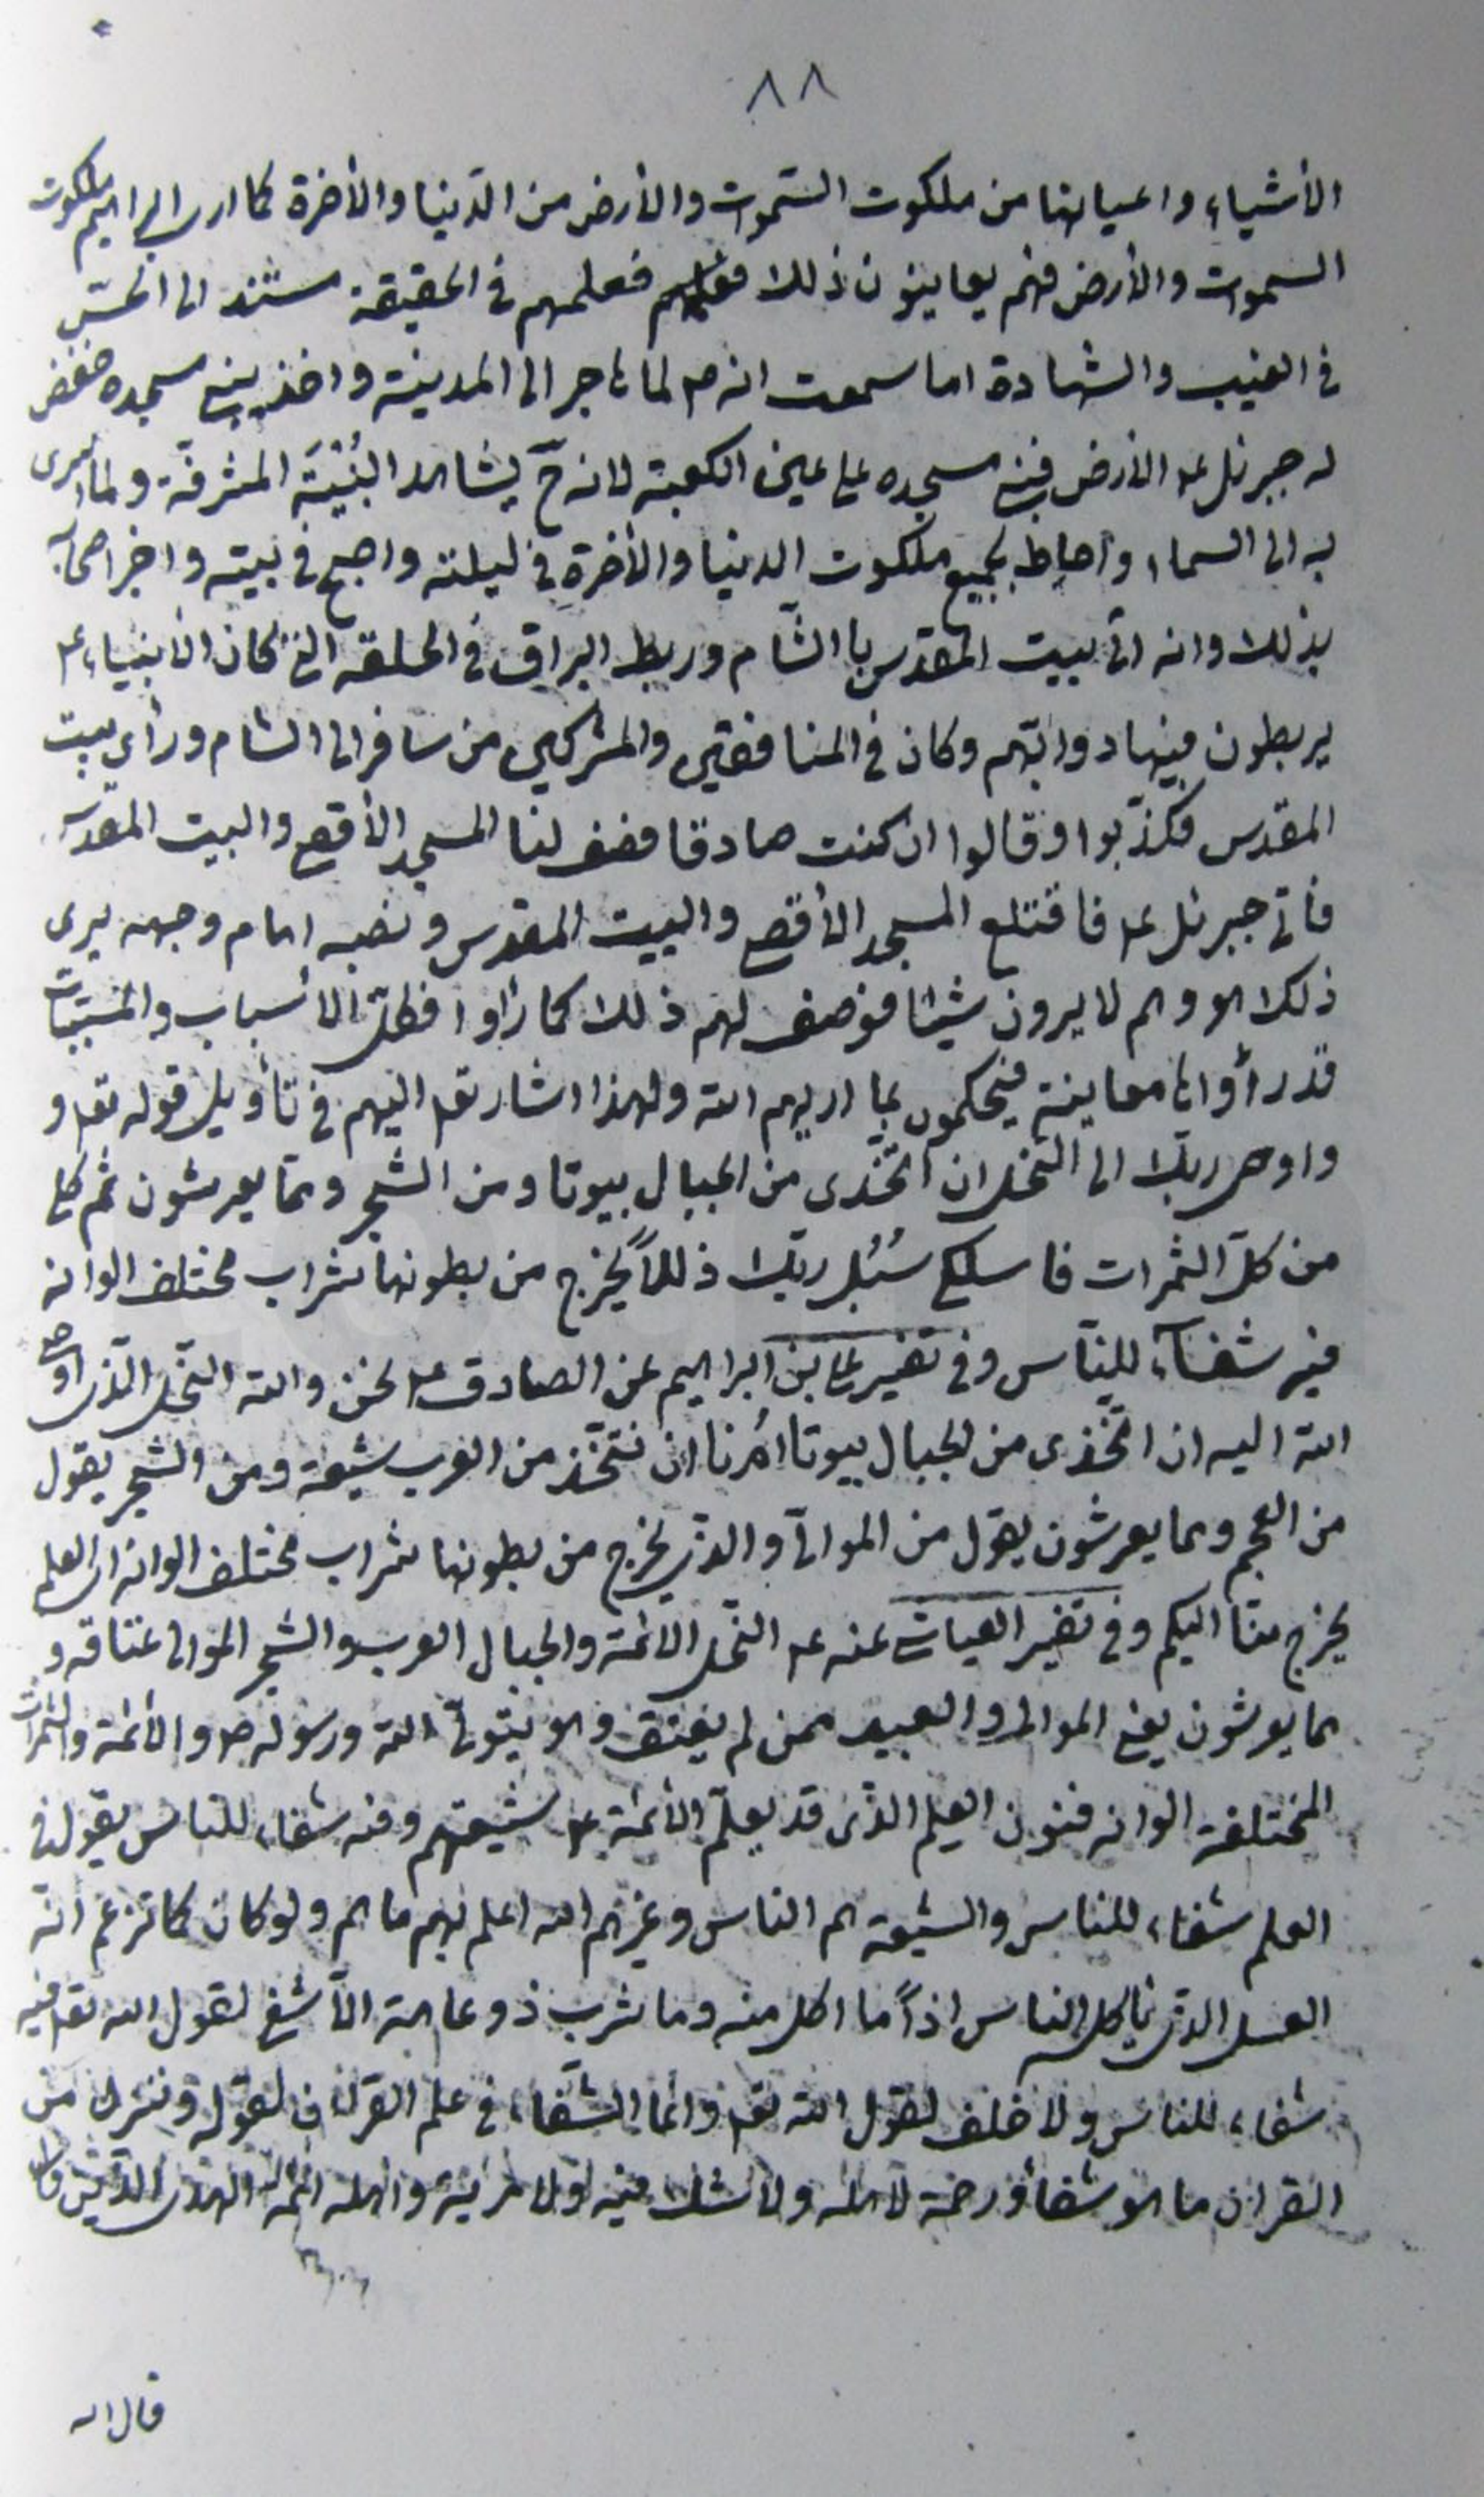 ٨٨
الأشياء واعيانها من ملكوت السّموات والأرض من الدّنيا والأخرة كما ارى ابراهيم ملكوت
السموات والأرض فهم يعاينون ذلك فعلمهم في الحقيقة مستند الى الحسّ
في الغيب والشهادة اما سمعت انه ص لما هاجر الى المدينة واخذ يبنى مسجده خفض
له جبرئل ع الأرض فبنى مسجده على عين الكعبة لانه ح يشاهد البُنْيَةَ المشرفّة ولما اسرى
به الى السماء واحاط بجميع ملكوت الدنيا والأخرةِ في ليلته واصبح في بيته واخبر اصحابه
بذلك وانه اتى بيت المقدس با الشّام وربط البراق في الحلقة التى كان الأنبياء ع
يربطون فيها دوابّهم وكان في المنافقين والمشركين من سافر الى الشام ورأى بيت
المقدس فكذّبوا وقالوا ان كنت صادقا فصف لنا المسجد الأقصى والبيت المقدّس
فأتى جبرئل ع فاقتلع المسجد الأقصى والبيت المقدس ونصبه امام وجهه يرى
ذلك هو وهم لا يرون شيئا فوصف لهم ذلك كما رأوا فظلّ الأسباب والمسبّبات
قد رأوها معاينة فيحكمون بما اريهم الله ولهذا اشار تعه اليهم في تأويل قوله تعه و
واوحى ربّك الى النّحل ان اتّخذى من الجبال بيوتا ومن الشجر وممّا يعرشون ثم كلى
من كلّ الثمرات فاسلكى سُبُل ربّك ذللاً يخرج من بطونها شراب مختلف الوانه
فيه شفآء للنّاس وفى تفسير على بن ابراهيم عن الصادق ع نحن والله النّحل الّذى اوحى
الله اليه ان اتّخذى من الجبال بيوتا اُمرنا ان نتّخذ من العرب شيعة ومن الشجر يقول
من العجم ومما يعرشون يقول من الموالى والذى يخرج من بطونها شراب مختلف الوانه اى العلم
يخرج منّا اليكم وفى تفسير العياشى عنه ع النّحل الائمة والجبال العرب والشجر الموالى عتاقه و
مما يعرشون يعنى الموالى والعبيد ممن لم يعتق وهو يتولّى الله ورسوله ص والأئمة والثمرات
المختلفة الوانه فنون العلم الذى قد يعلّم الأئمة ع شيعتهم وفيه شفاء للناس يقول فى
العلم شفاء للناس والشيعة هم الناس وغيرهم الله اعلم بهم ما هم ولو كان كما تزعم انّه
العسل الذى يأكله الناس اذاً ما اكل منه وما شرب ذو عاهة الّا شفى لقول الله تعه فيه
شفاء للناس ولا خلف لقول الله تعه وانما الشّفاء في علم القران لقوله وننزل من
القران ما هو شفاء ورحمة لاهله ولا شك فيه ولا مرية واهله ائمة الهدى الّذين
قال الله